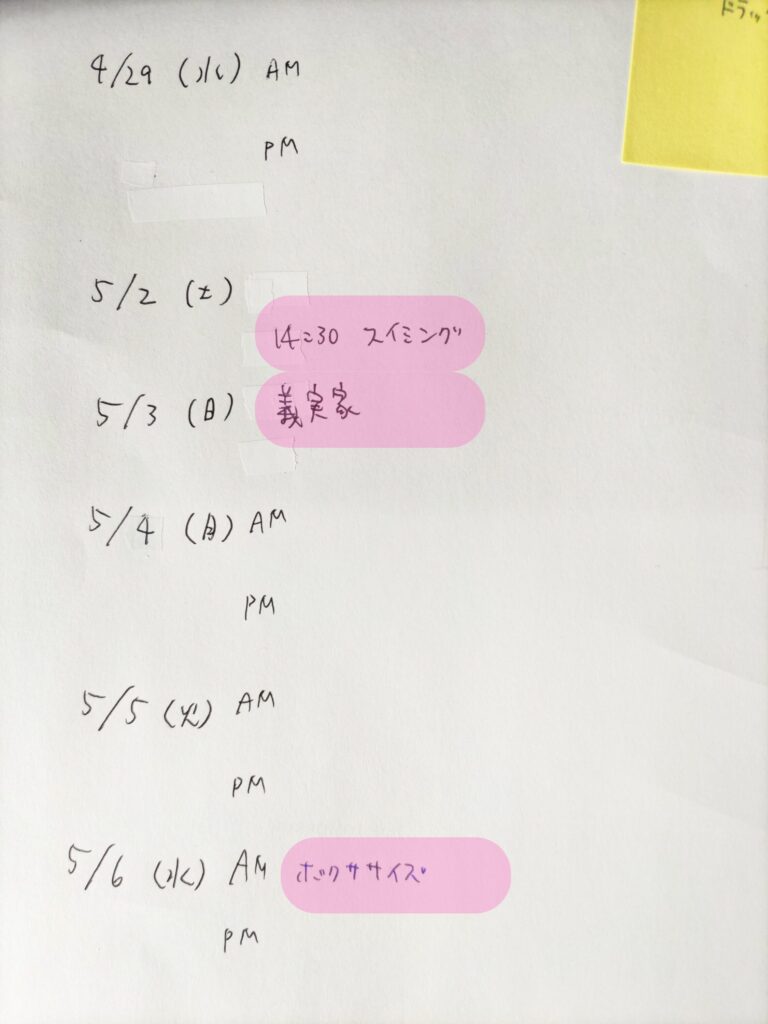 ドラッ
4/29 (水) AM
PM
5/2 (土)
14:30 スイミング
5/3 (日) 義実家
5/4 (月) AM
PM
5/5 (火) AM
PM
5/6 (水) AM ボクササイズ
PM